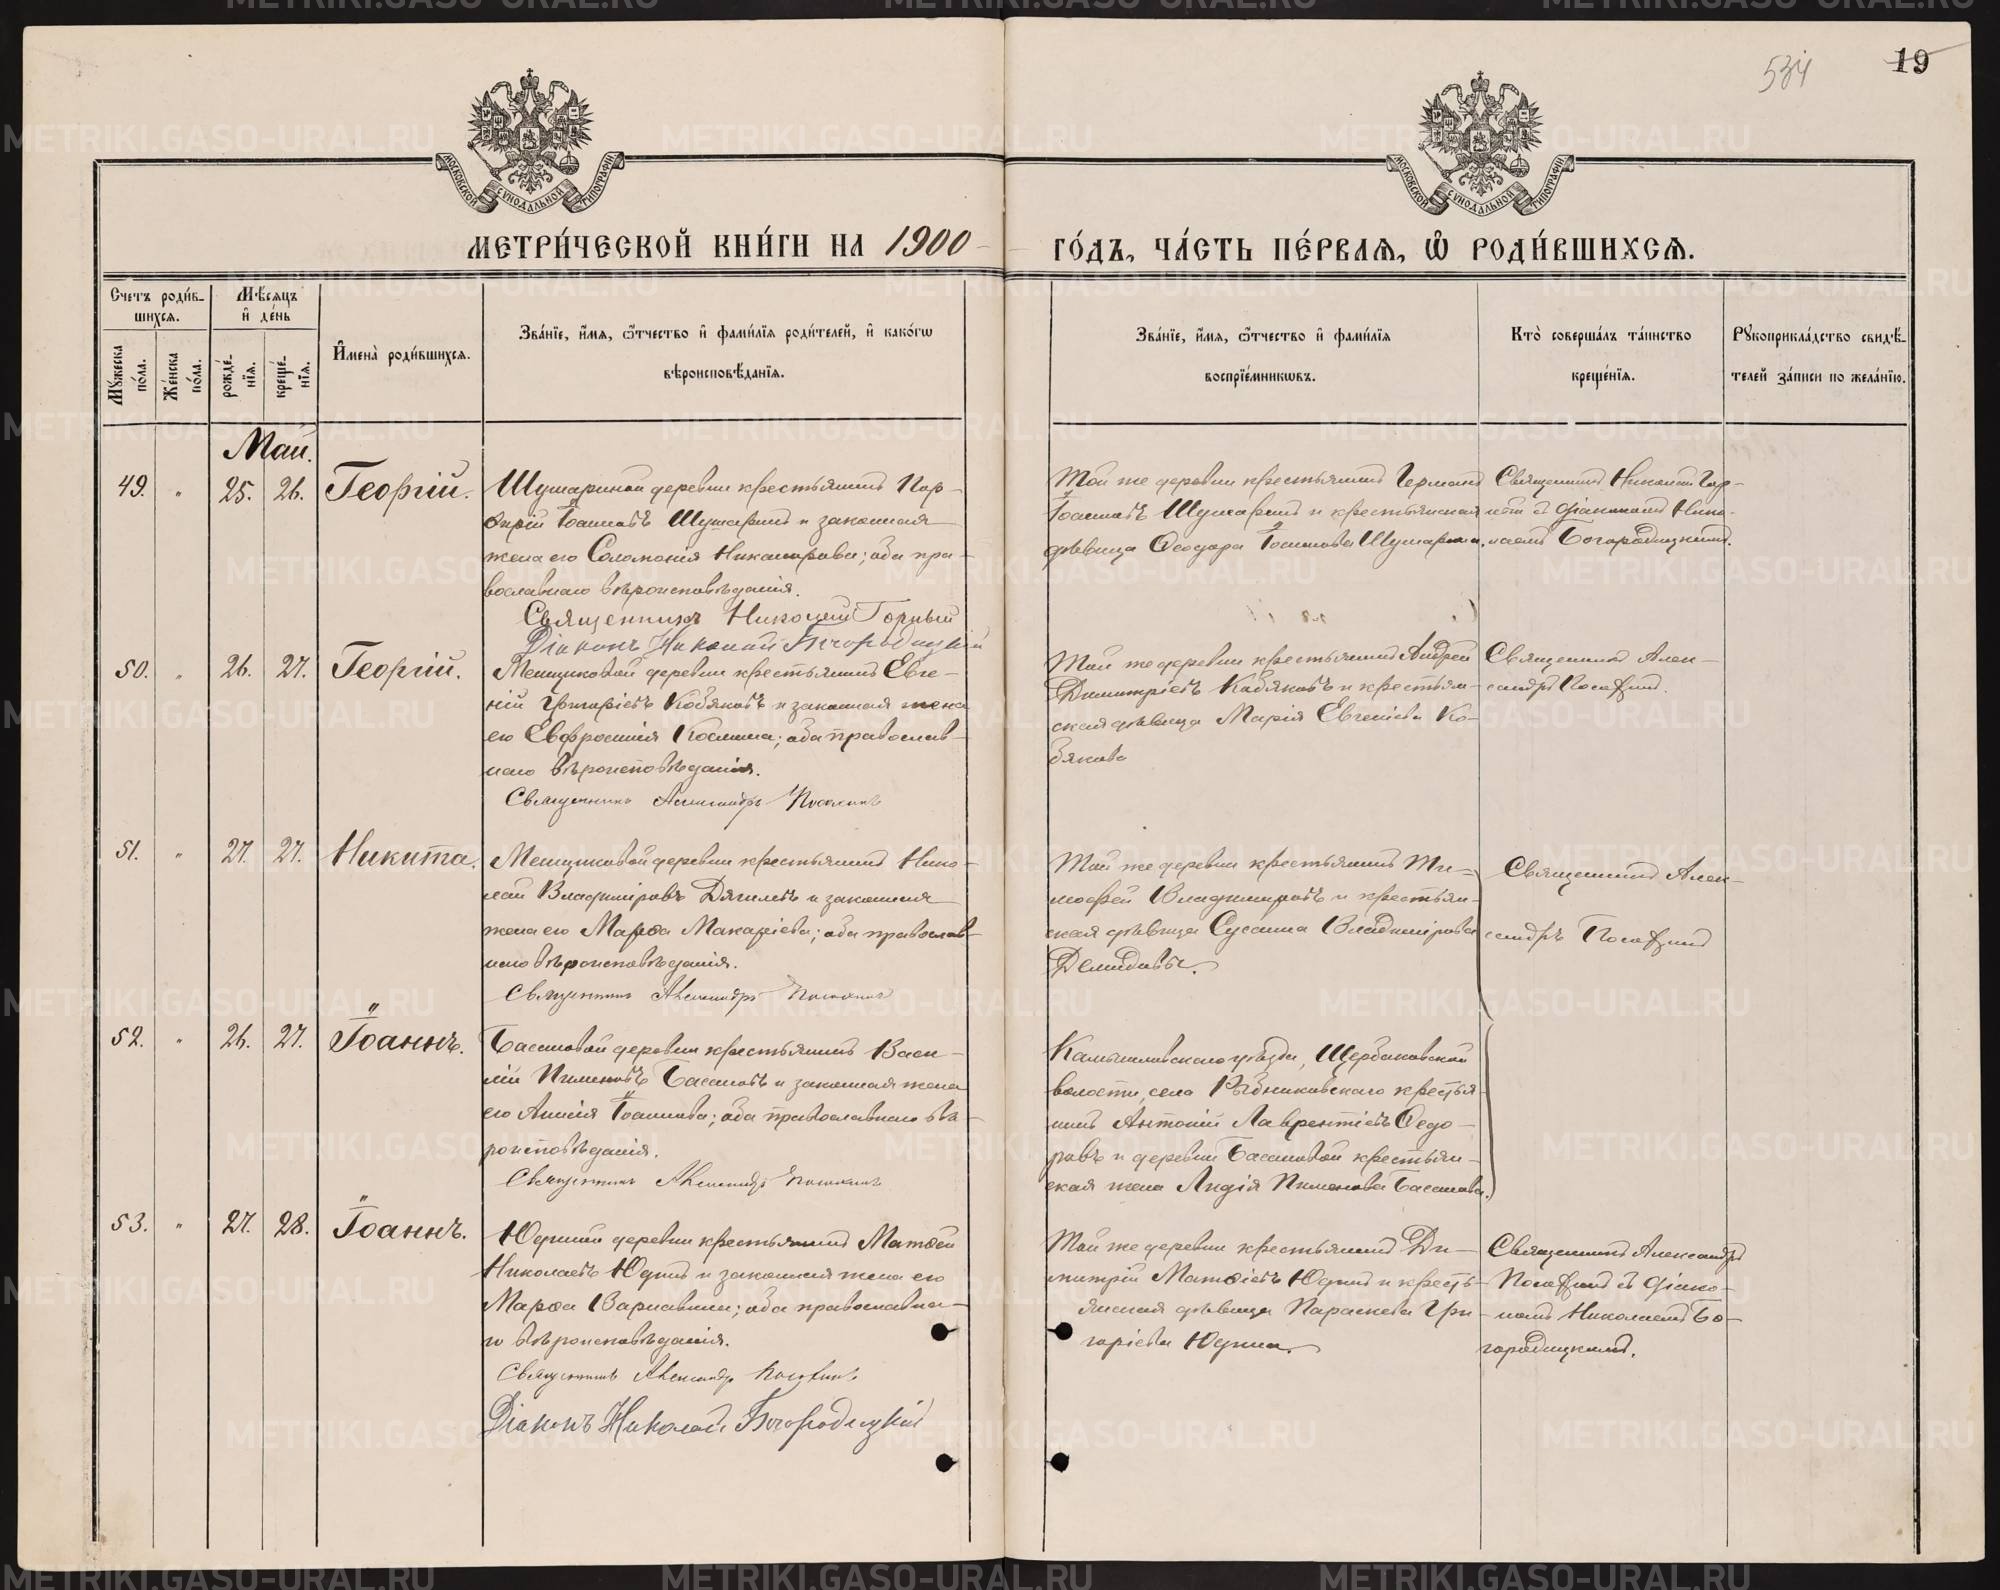 534
19
МОСКОВСКОЙ СѴНОДАЛЬНОЙ ТИПОГРАФІИ
МОСКОВСКОЙ СѴНОДАЛЬНОЙ ТИПОГРАФІИ
МЕТРИ́ЧЕСКОЙ КНИ́ГИ НА 1900
ГО́ДЪ, ЧА́СТЬ ПЕ́РВАѦ, Ѽ РОДИ́ВШИХСѦ.
Счетъ роди́в-
шихсѧ.
Мѣ́сѧцъ
и҆ де́нь
Мꙋжеска по́ла.
Же́нска по́ла.
рожде́-нїѧ.
креще́-нїѧ.
И҆мена̀ роди́вшихсѧ.
Зва́нїе, и҆́мѧ, ѻ҆́тчество и҆ фами́лїѧ роди́телей, и҆ како́гѡ
вѣроисповѣ́данїѧ.
Зва́нїе, и҆́мѧ, ѻ҆́тчество и҆ фами́лїѧ
воспрїе́мникѡвъ.
Кто̀ соверша́лъ та́инство
креще́нїѧ.
Рꙋкоприкла́дство свидѣ́-
телей за́писи по жела́нїю.
Май.
49. " 25. 26. Георгій.
Шушариной деревни крестьянинъ Пор-
фирій Іоанновъ Шушаринъ и законная
жена его Соломонія Никанорова; оба пра-
вославнаго вѣроисповѣданія.
Священникъ Николай Горный
Діаконъ Николай Богородицкій
Той же деревни крестьянинъ Германъ
Іоанновъ Шушаринъ и крестьянская
дѣвица Ѳеодора Іоаннова Шушарина.
Священникъ Николай Гор-
ный съ діакономъ Нико-
лаемъ Богородицкимъ.
50. " 26. 27. Георгій.
деревни крестьянинъ Евге-
ній Григоріевъ Кобяковъ и законная жена
его Евфросинія Космина; оба православ-
наго вѣроисповѣданія.
Священникъ Александръ
Той же деревни крестьянинъ Андрей
Димитріевъ Кобяковъ и крестьян-
ская дѣвица Марія Евгеніева Ко-
бякова
Священникъ Алек-
сандръ
51. " 27. 27. Никита.
деревни крестьянинъ Нико-
лай Владиміровъ и законная
жена его Марѳа Макаріева; оба православ-
наго вѣроисповѣданія.
Священникъ Александръ
Той же деревни крестьянинъ Ти-
моѳей Владиміровъ и крестьян-
ская дѣвица Сусанна Владимірова
Демидовы.
Священникъ Алек-
сандръ
52. " 26. 27. Іоаннъ.
Басановой деревни крестьянинъ Васи-
лій Пименовъ Басановъ и законная жена
его Анисія Іоаннова; оба православнаго вѣ-
роисповѣданія.
Священникъ Александръ
Камышловскаго уѣзда, Щербаковской
волости, села Рыбниковскаго крестья-
нинъ Антоній Лаврентіевъ Ѳедо-
ровъ и деревни Басановой крестьян-
ская жена Лидія Пименова Басанова.
53. " 27. 28. Іоаннъ.
Юдиной деревни крестьянинъ Матѳей
Николаевъ Юдинъ и законная жена его
Марѳа Варнавина; оба православна-
го вѣроисповѣданія.
Священникъ Александръ
Діаконъ Николай Богородицкій
Той же деревни крестьянинъ Ди-
митрій Матѳіевъ Юдинъ и кресть-
янская дѣвица Параскева Гри-
горіева Юдина.
Священникъ Александръ
съ діако-
номъ Николаемъ Бо-
городицкимъ.
METRIKI.GASO-URAL.RU